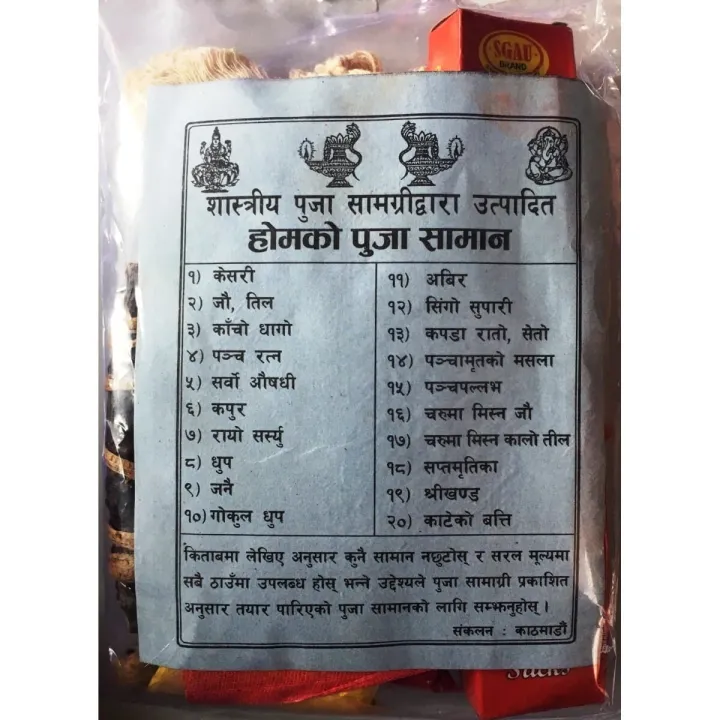 SGAU
BRAND
शास्त्रीय पुजा सामग्रीद्वारा उत्पादित
होमको पुजा सामान
१) केसरी
२) जौ, तिल
३) काँचो धागो
४) पञ्च रत्न
५) सर्वो औषधी
६) कपुर
७) रायो सर्स्यु
८) धुप
९) जनै
१०) गोकुल धुप
११) अबिर
१२) सिंगो सुपारी
१३) कपडा रातो, सेतो
१४) पञ्चामृतको मसला
१५) पञ्चपल्लभ
१६) चरुमा मिस्न जौ
१७) चरुमा मिस्न कालो तील
१८) सप्तमृतिका
१९) श्रीखण्ड
२०) काटेको बत्ति
किताबमा लेखिए अनुसार कुनै सामान नछुटोस् र सरल मूल्यमा
सबै ठाउँमा उपलब्ध होस् भन्ने उद्देश्यले पुजा सामाग्री प्रकाशित
अनुसार तयार पारिएको पुजा सामानको लागि सम्झनुहोस् ।
संकलन : काठमाडौं